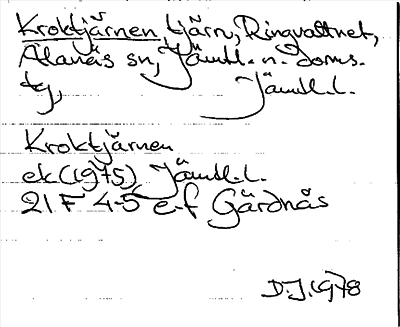 Kroktjärnen, tjärn, Ringvattnet,
Alanäs sn, Jämtl. n. doms.
tg, Jämtl.l.
Kroktjärnen
ek (1975) Jämtl.l.
21 F 4-5 e-f Gärdnäs
D.J. 1978